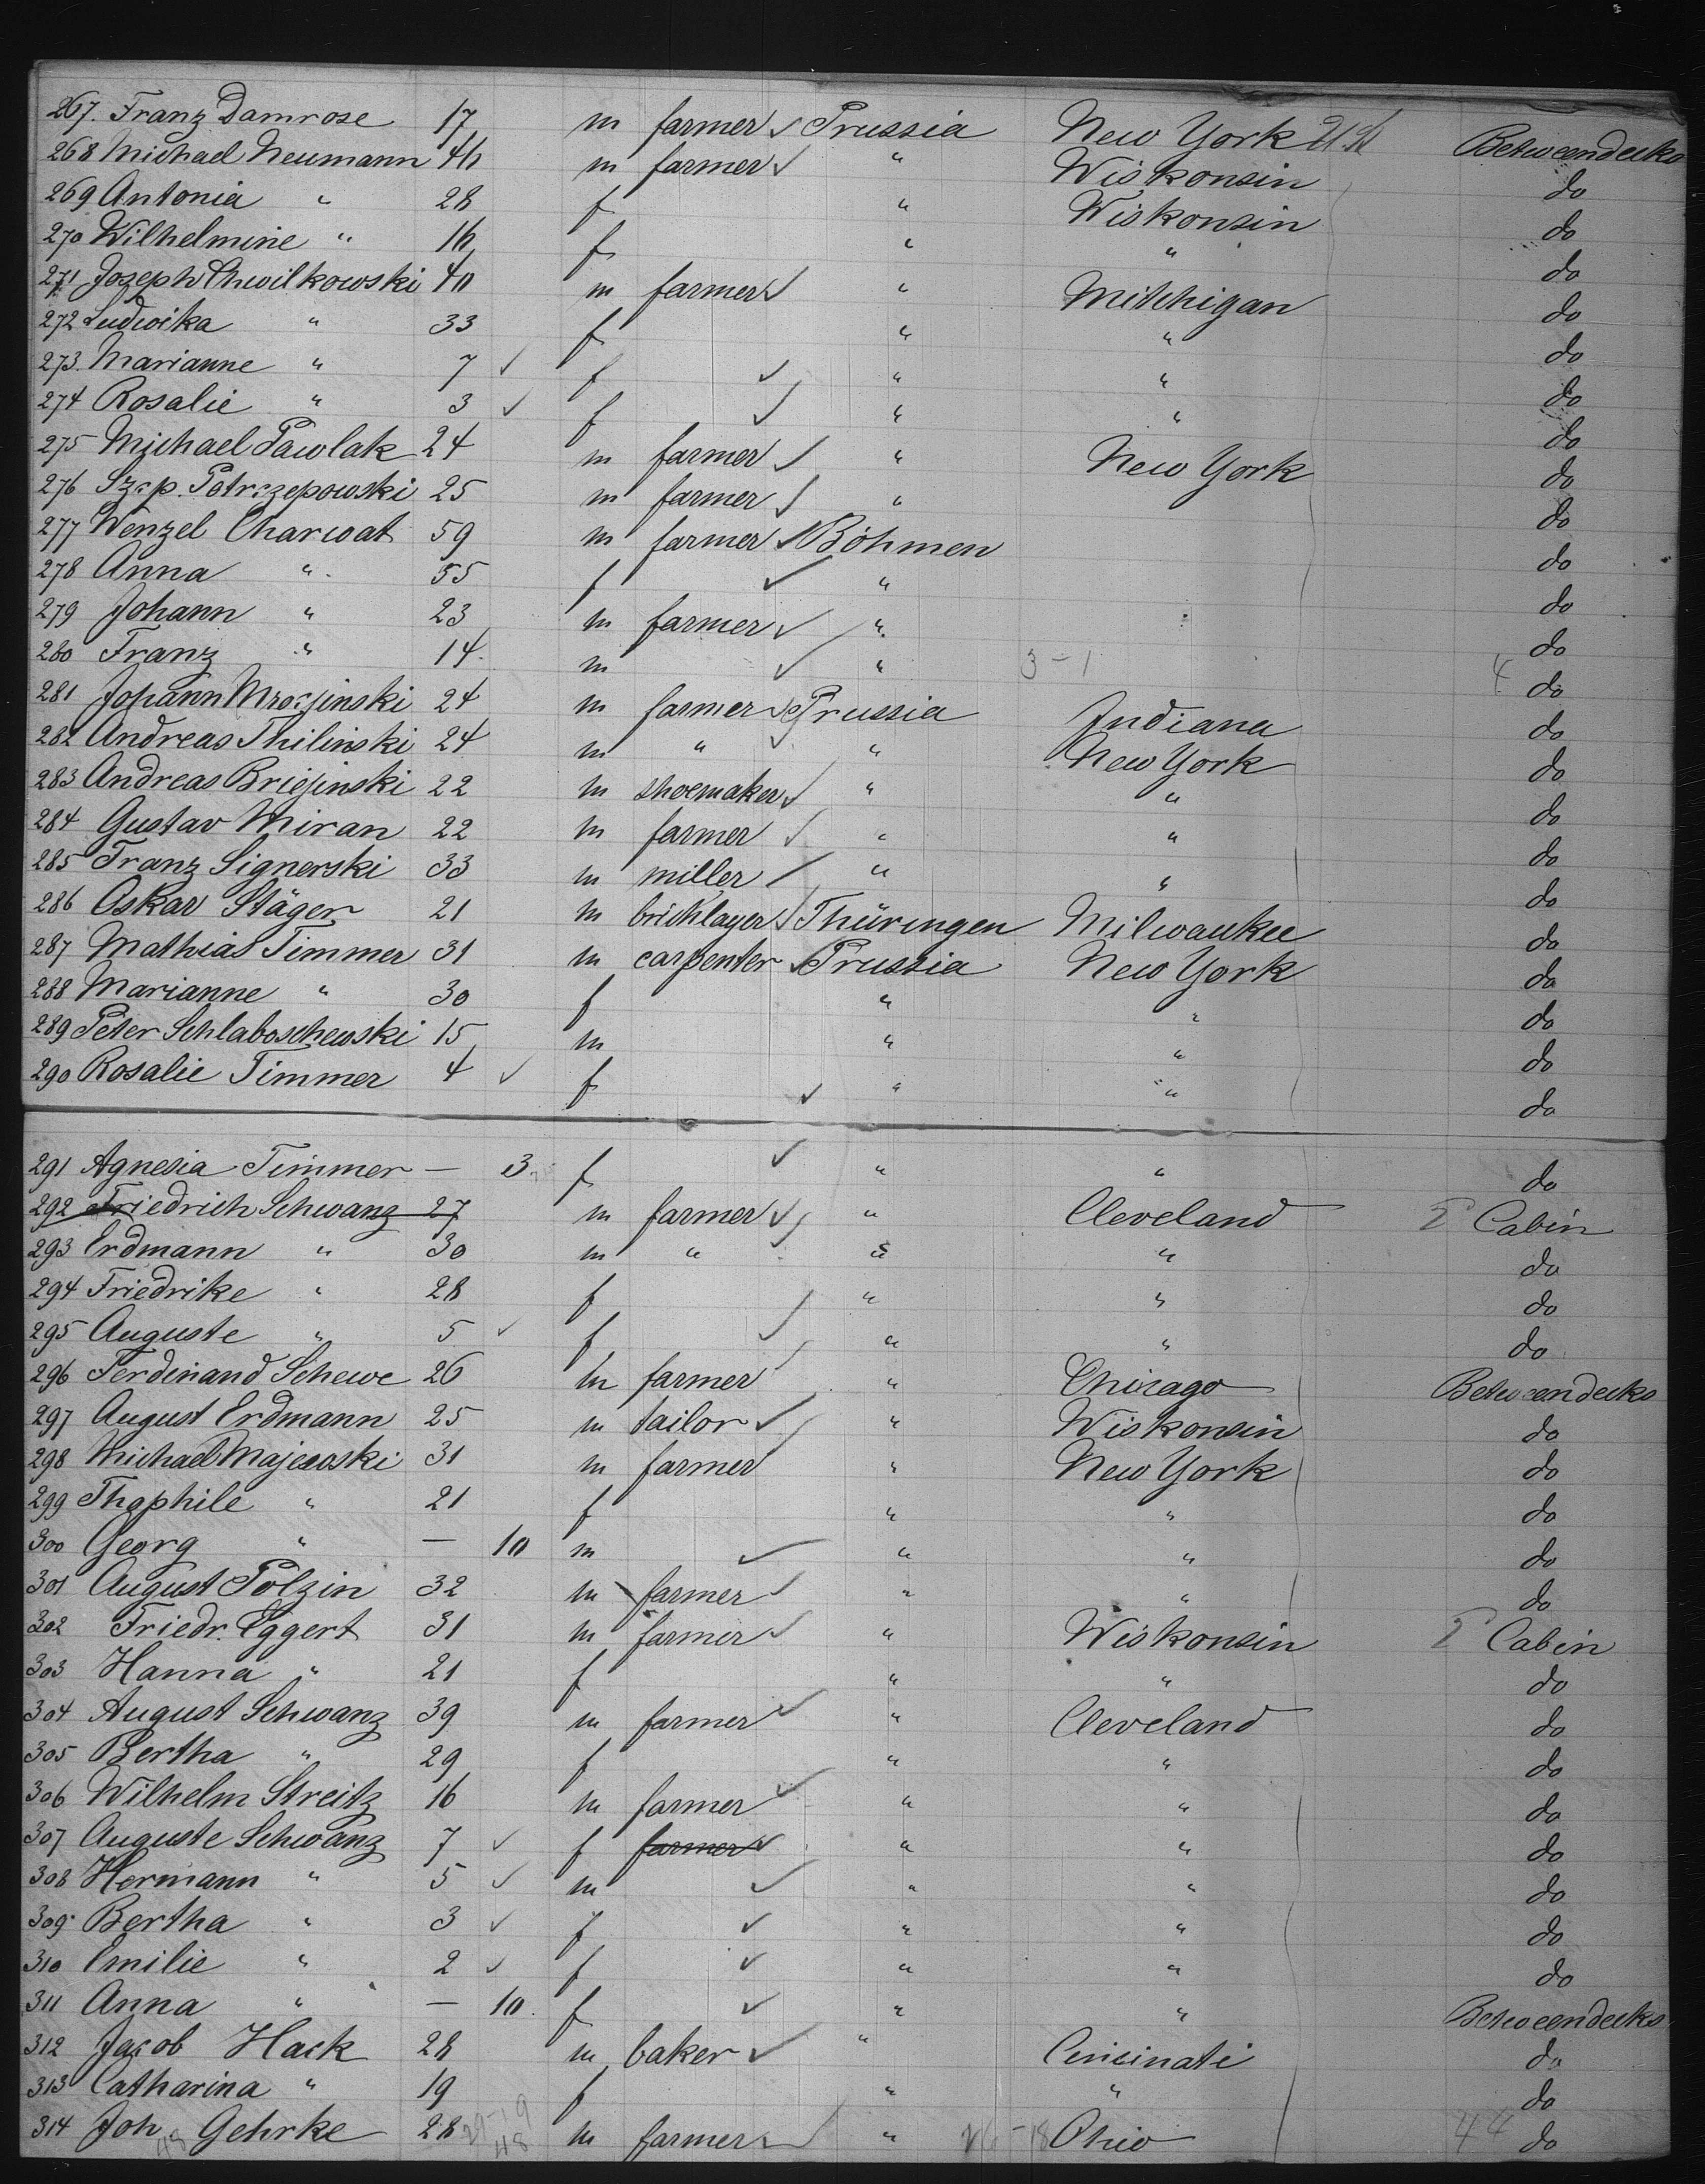 267. Franz Damrose 17 m farmer ✓ Prussia New York Betweendecks
268 Michael Neumann 46 m farmer ✓ " Wiskonsin do
269 Antonia " 28 f " Wiskonsin do
270 Wilhelmine " 16 f " " do
271 Joseph Chwilkowski 40 m farmer ✓ " Mitchigan do
272 Ludwika " 33 f " " do
273. Marianne " 7 ✓ f ✓ " " do
274 Rosalie " 3 ✓ f ✓ " " do
275 Michael Pawlak 24 m farmer ✓ " New York do
276 Petrczepowski 25 m farmer ✓ " do
277 Wenzel Charwat 59 m farmer ✓ Böhmen do
278 Anna " 55 f ✓ " do
279 Johann " 23 m farmer ✓ " do
280 Franz " 14. m ✓ " 3-1 4 do
281 Johann 24 m farmer ✓ Prussia Indiana do
282 Andreas Thilinski 24 m " ✓ " New York do
283 Andreas Briejinski 22 m shoemaker ✓ " " do
284 Gustav Miran 22 m farmer ✓ " " do
285 Franz Signerski 33 m miller ✓ " " do
286 Oskar Stäger 21 m bricklayer ✓ Thüringen Milwaukee do
287 Mathias Timmer 31 m carpenter ✓ Prussia New York do
288 Marianne " 30 f " " do
289 Peter Schlaboschewski 15 m " " do
290 Rosalie Timmer 4 ✓ f ✓ " " do
291 Agnesia Timmer — 3. f ✓ " " do
292 Friedrich Schwanz 27 m farmer ✓ " Cleveland Cabin
293 Erdmann " 30 m " " " do
294 Friedrike " 28 f " " do
295 Auguste " 5 ✓ f ✓ " " do
296 Ferdinand Schewe 26 m farmer " Chicago Betweendecks
297 August Erdmann 25 m tailor ✓ " Wiskonsin do
298 Michael Majewski 31 m farmer " New York do
299 Thophile " 21 f " " do
300 Georg " — 10 m ✓ " " do
301 August Polzin 32 m farmer ✓ " " do
302 Friedr. Eggert 31 m farmer ✓ " Wiskonsin Cabin
303 Hanna " 21 f " " do
304 August Schwanz 39 m farmer ✓ " Cleveland do
305 Bertha " 29 f " " do
306 Wilhelm Streitz 16 m farmer ✓ " " do
307 Auguste Schwanz 7 ✓ f farmer ✓ " " do
308 Hermann " 5 ✓ m ✓ " " do
309 Bertha " 3 ✓ f ✓ " " do
310 Emilie " 2 ✓ f ✓ " " do
311 Anna " — 10. f ✓ " " Betweendecks
312 Jacob Hack 28 m baker ✓ " Cincinati do
313 Catharina " 19 f " " do
314 Joh Gehrke 28 m farmer ✓ " Ohio 44 do